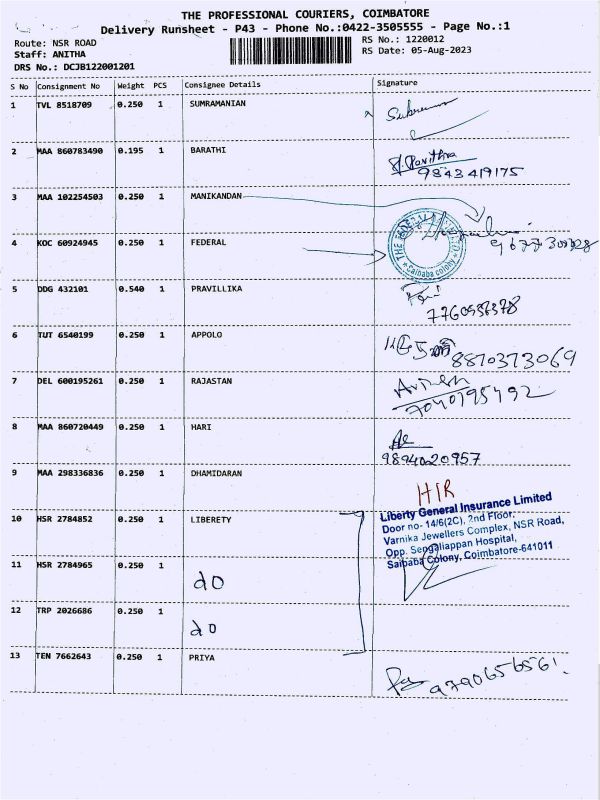 THE PROFESSIONAL COURIERS, COIMBATORE
Delivery Runsheet - P43 - Phone No.:0422-3505555 - Page No.:1
Route: NSR ROAD
Staff: ANITHA
DRS No.: DCJB122001201
RS No.: 1220012
RS Date: 05-Aug-2023
S No Consignment No Weight PCS Consignee Details Signature
1 TVL 8518709 0.250 1 SUMRAMANIAN
2 MAA 860783490 0.195 1 BARATHI
Pavithra
9843419175
3 MAA 102254503 0.250 1 MANIKANDAN
4 KOC 60924945 0.250 1 FEDERAL
Saibaba colony
5 DDG 432101 0.540 1 PRAVILLIKA
6 TUT 6540199 0.250 1 APPOLO
8870373069
7 DEL 600195261 0.250 1 RAJASTAN
8 MAA 860720449 0.250 1 HARI
9894020957
9 MAA 298336836 0.250 1 DHAMIDARAN
H/R
10 HSR 2784852 0.250 1 LIBERETY
Liberty General Insurance Limited
Door no- 14/6(2C), 2nd Floor,
Varnika Jewellers Complex, NSR Road,
Opp. Sengaliappan Hospital,
Saibaba Colony, Coimbatore-641011
11 HSR 2784965 0.250 1 do
12 TRP 2026686 0.250 1 do
13 TEN 7662643 0.250 1 PRIYA
9790656561